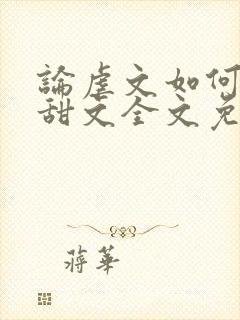 論虐文如何
甜文全文免
蔣華